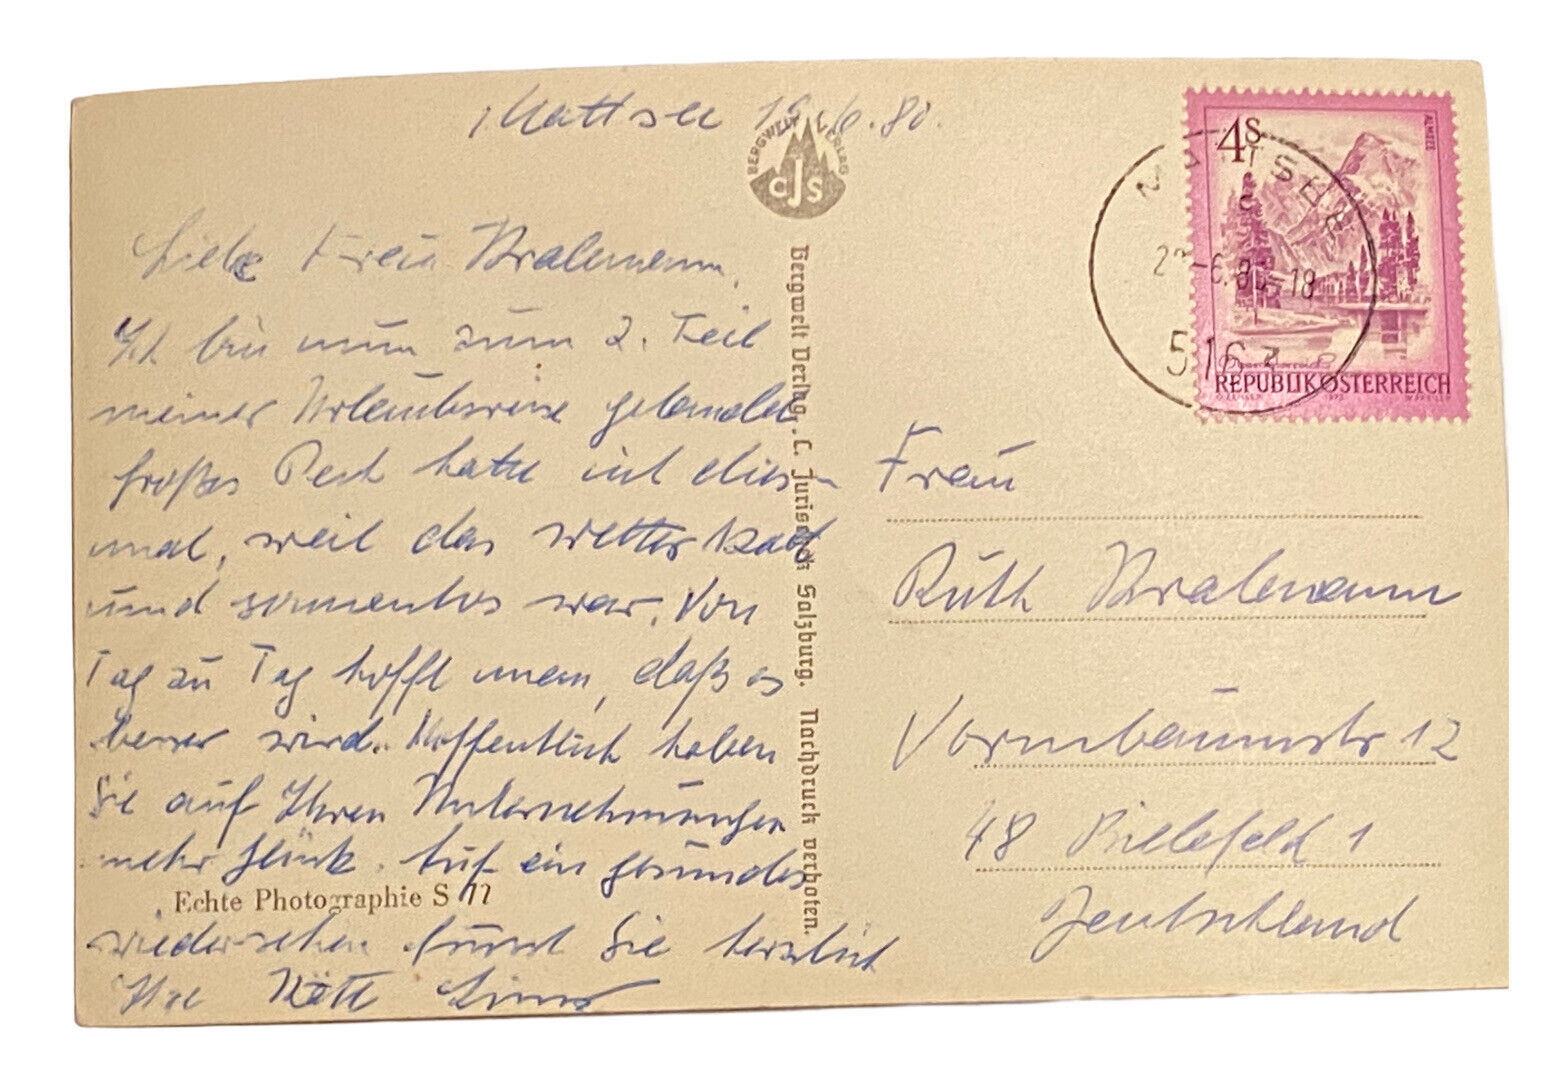 Mattsee 19.6.80.
BERGWELT VERLAG
CJS
Liebe Frau
Ich bin nun zum 2. Teil
meiner Urlaubsreise gelandet
großes Pech hatte ich dies
mal, weil das Wetter kalt
und sonnenlos war. Von
Tag zu Tag hofft man, daß es
besser wird. Hoffentlich haben
Sie auf Ihren Unternehmungen
mehr Glück. Auf ein gesundes
Echte Photographie S 11
wiedersehen grüsst Sie herzlich
Ihre
Bergwelt Verlag, C. Jurischek Salzburg. Nachdruck verboten.
4S
ALMSEE
REPUBLIK ÖSTERREICH
MATTSEE
-6.80-18
516
Frau
Ruth
Vormbaumstr 12
48 Bielefeld 1
Deutschland